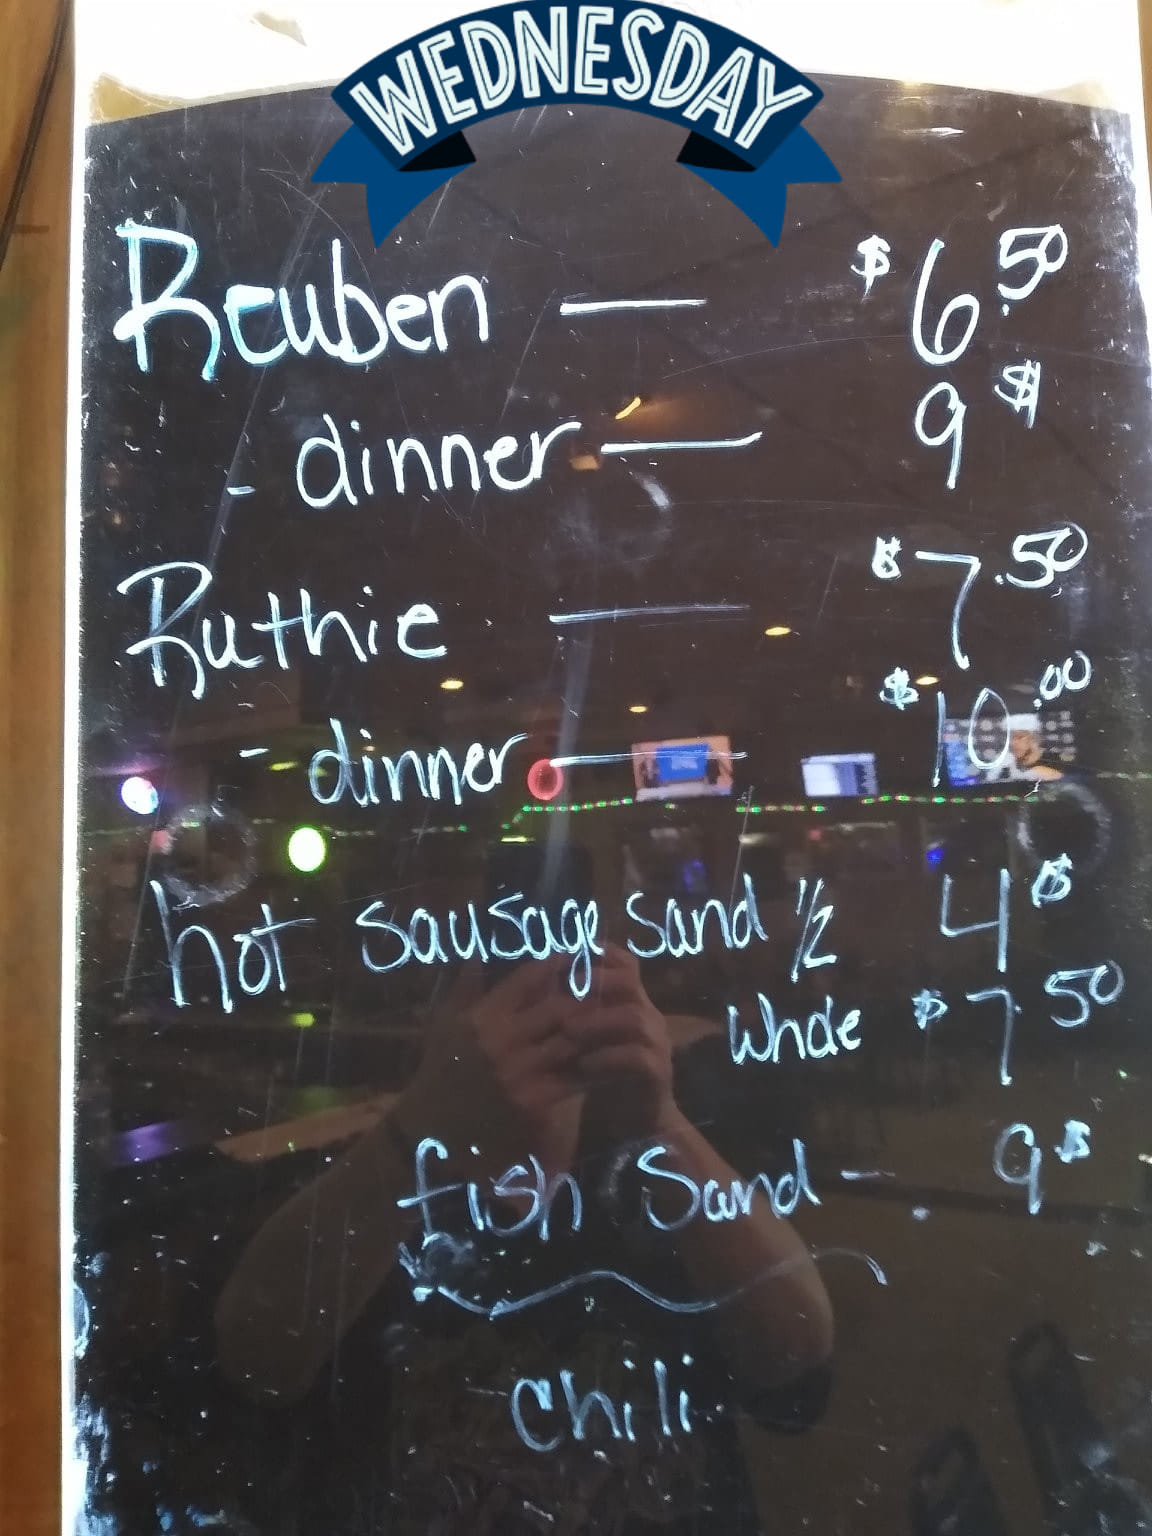 WEDNESDAY
Reuben — $6.50
- dinner — 9$
Ruthie — $7.50
- dinner — $10.00
hot sausage sand 1/2 4$
Whole $7.50
fish Sand - 9$
Chili